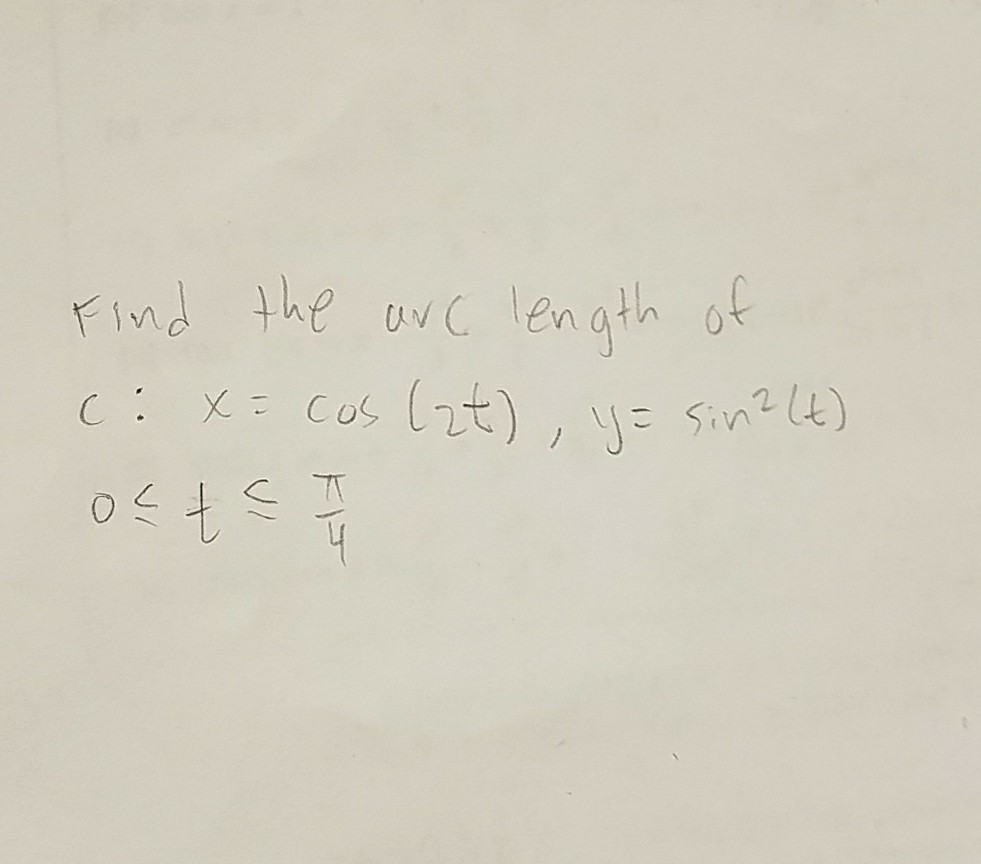 Find the arc length of
C: x = cos (2t), y = sin²(t)
0 ≤ t ≤ π/4